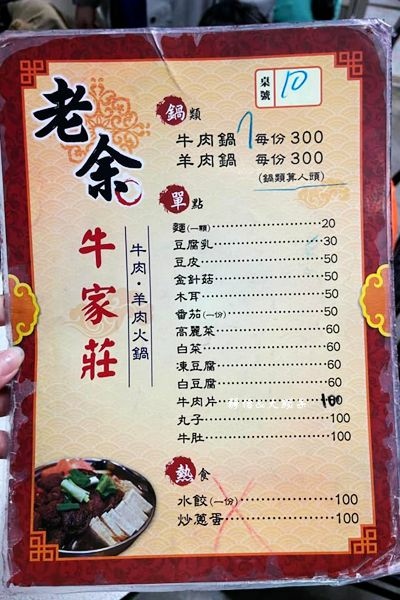 桌號 10
老余
牛家莊
牛肉・羊肉火鍋
鍋類
牛肉鍋 每份300
羊肉鍋 每份300
(鍋類算人頭)
單點
麵(一顆)………20
豆腐乳………30
豆皮………50
金針菇………50
木耳………50
番茄(一份)………50
高麗菜………60
白菜………60
凍豆腐………60
白豆腐………60
牛肉片………100
丸子………100
牛肚………100
熱食
水餃(一份)………100
炒蔥蛋………100